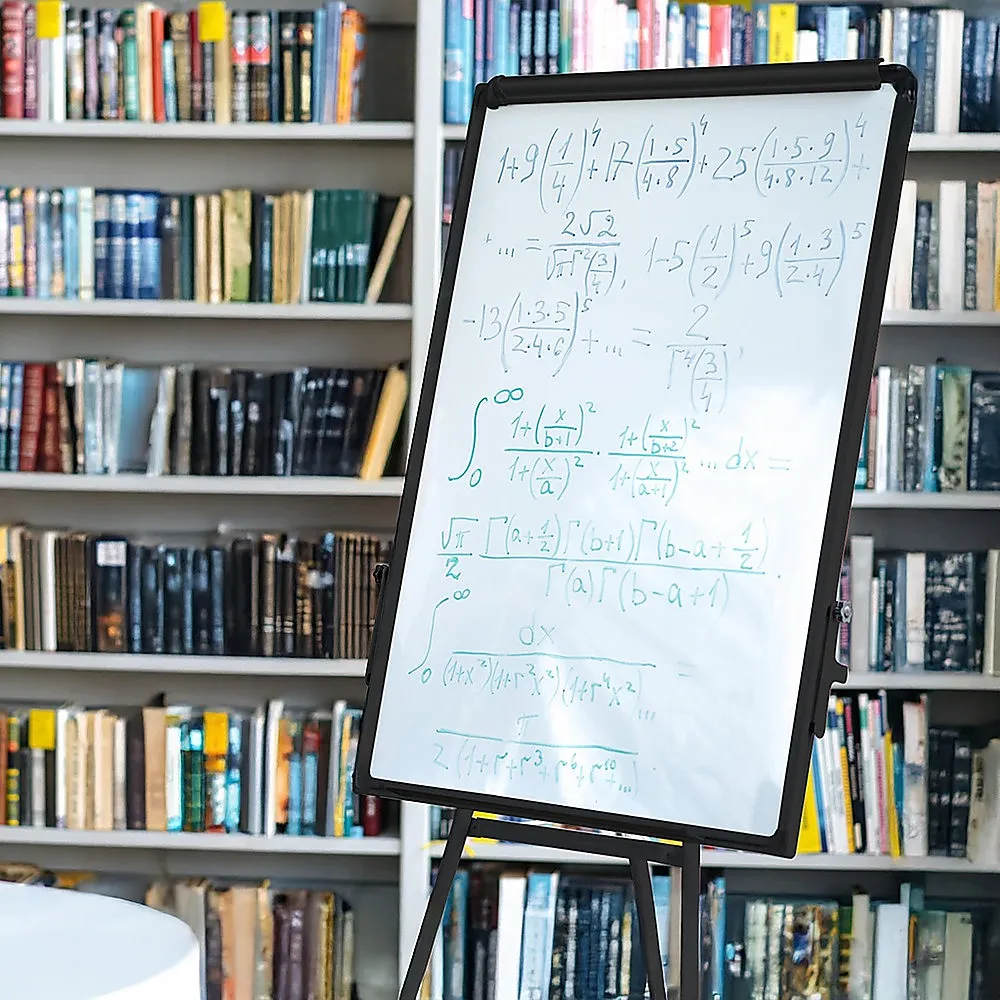 1+9(1/4)^4+17(1·5/4·8)^4+25(1·5·9/4·8·12)^4+
+...=2√2/(√π Γ^2(3/4)), 1-5(1/2)^5+9(1·3/2·4)^5
-13(1·3·5/2·4·6)^5+...=2/Γ^4(3/4),
∫_0^∞ (1+(x/(b+1))^2)/(1+(x/a)^2)·(1+(x/(b+2))^2)/(1+(x/(a+1))^2)...dx=
√π/2 Γ(a+1/2)Γ(b+1)Γ(b-a+1/2)/(Γ(a)Γ(b-a+1)).
∫_0^∞ dx/((1+x^2)(1+r^2x^2)(1+r^4x^2)...)=
π/(2(1+r+r^3+r^6+r^10+...)).